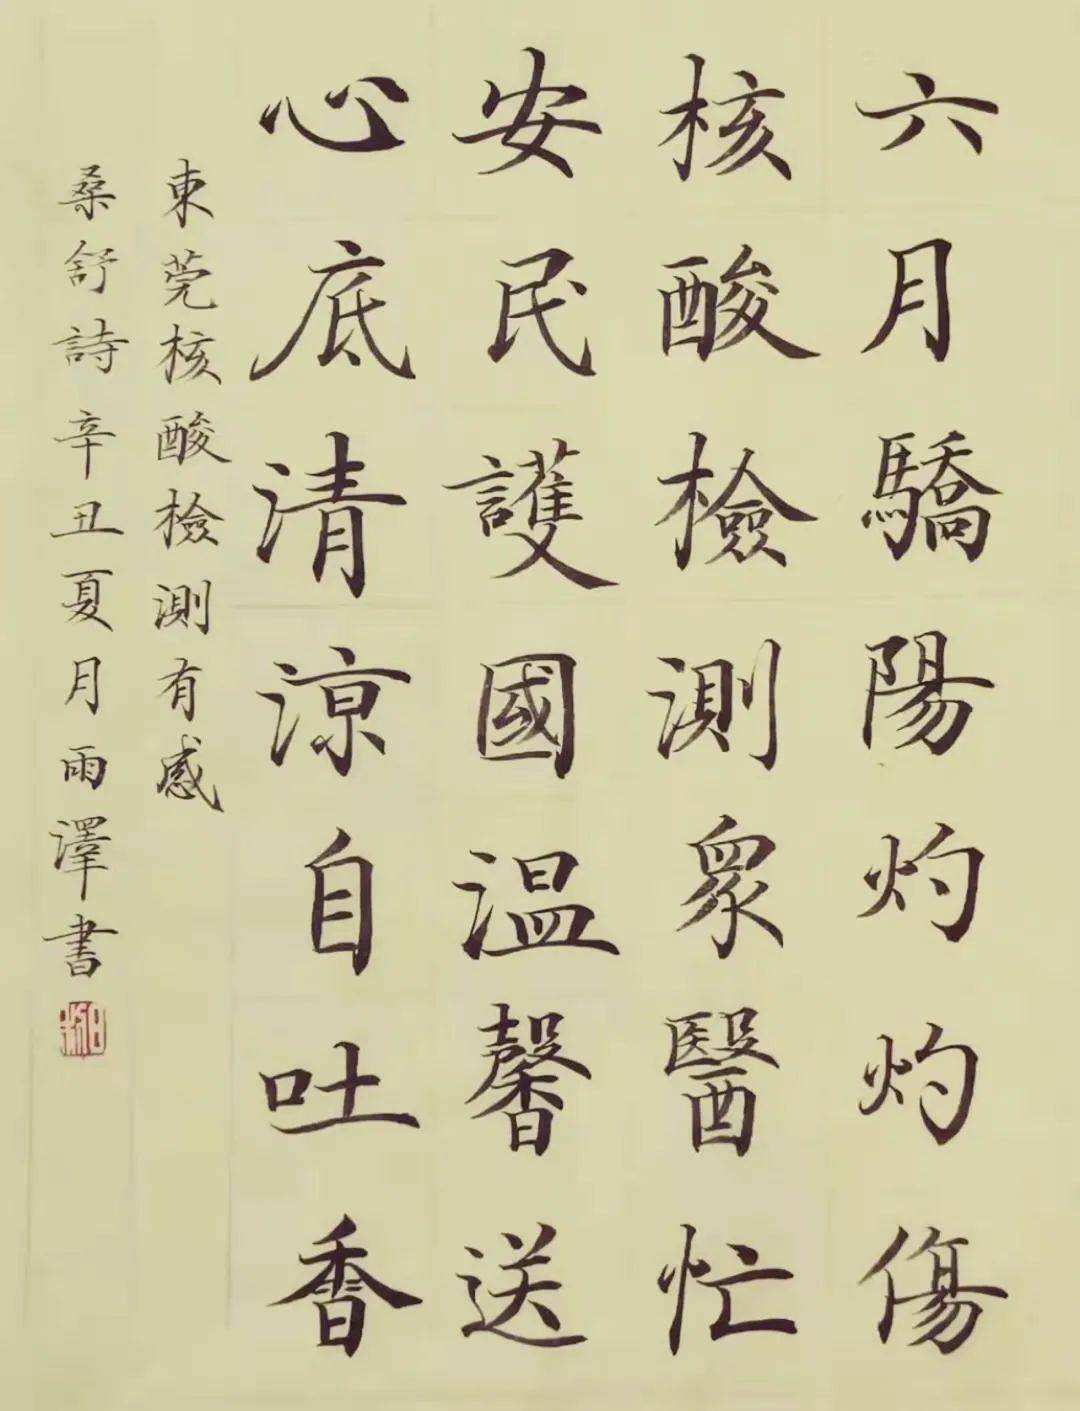 六月驕陽灼灼傷
核酸檢測衆醫忙
安民護國溫馨送
心底清涼自吐香
東莞核酸檢測有感
桑舒詩辛丑夏月雨澤書